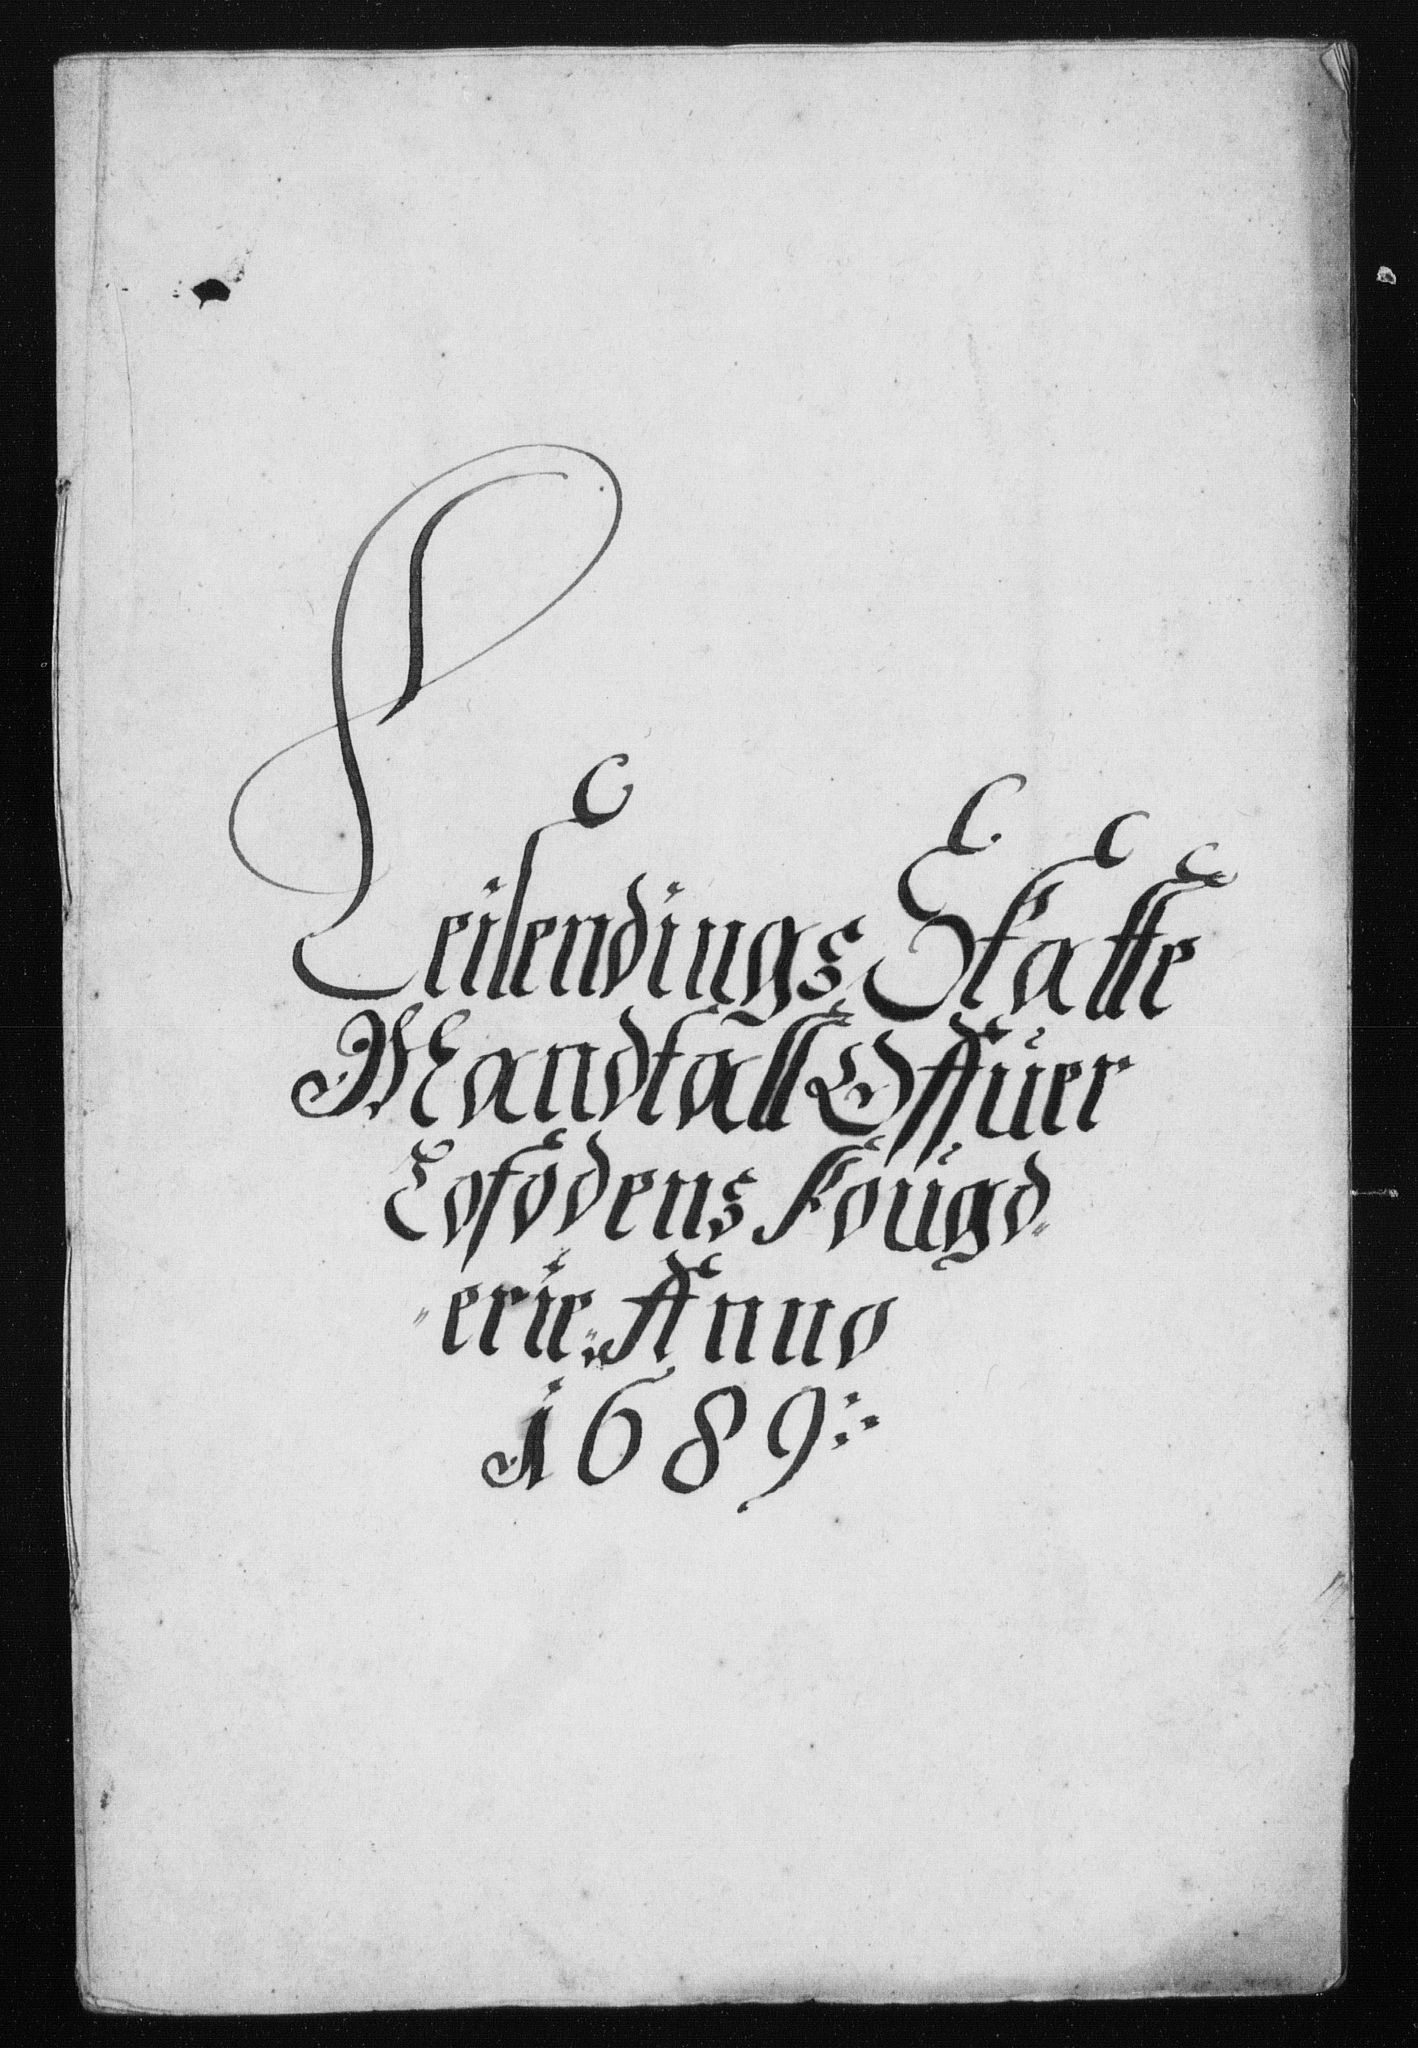 Leilendings Skatte
Mandtall Offuer
Lofodens Fougd„
„erie„ Anno
1689